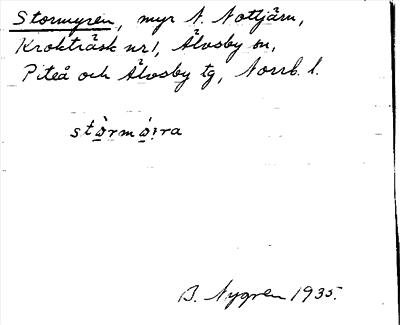 Stormyren, myr N. Nottjärn,
Krokträsk nr 1, Älvsby sn,
Piteå och Älvsby tg, Norrb. l.
stò̱rmó̱i̯ra
B. Nygren 1935.